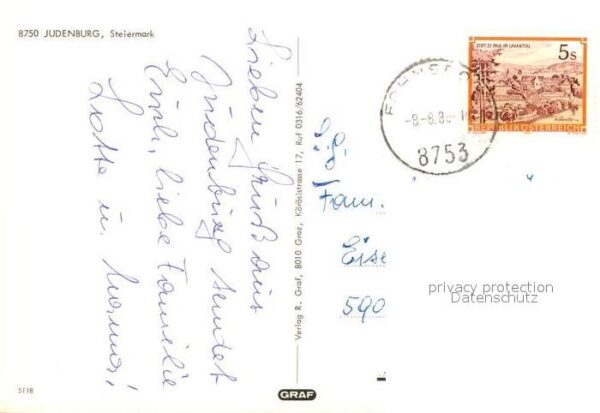 8750 JUDENBURG, Steiermark
Lieben Gruß aus
Judenburg sendet
Euch, liebe Familie
Lotte u.
Verlag R. Graf, 8010 Graz, Körösistrasse 17, Ruf 0316/62404
GRAF
5118
STIFT ST. PAUL IM LAVANTTAL
5s
REPUBLIK ÖSTERREICH
-8-8.8
8753
Fam.
Eise
590
privacy protection
Datenschutz